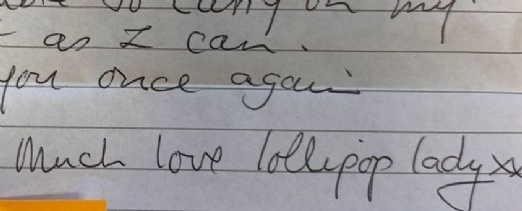 to carry on my
as I can.
you once again
Much love lollipop lady xx